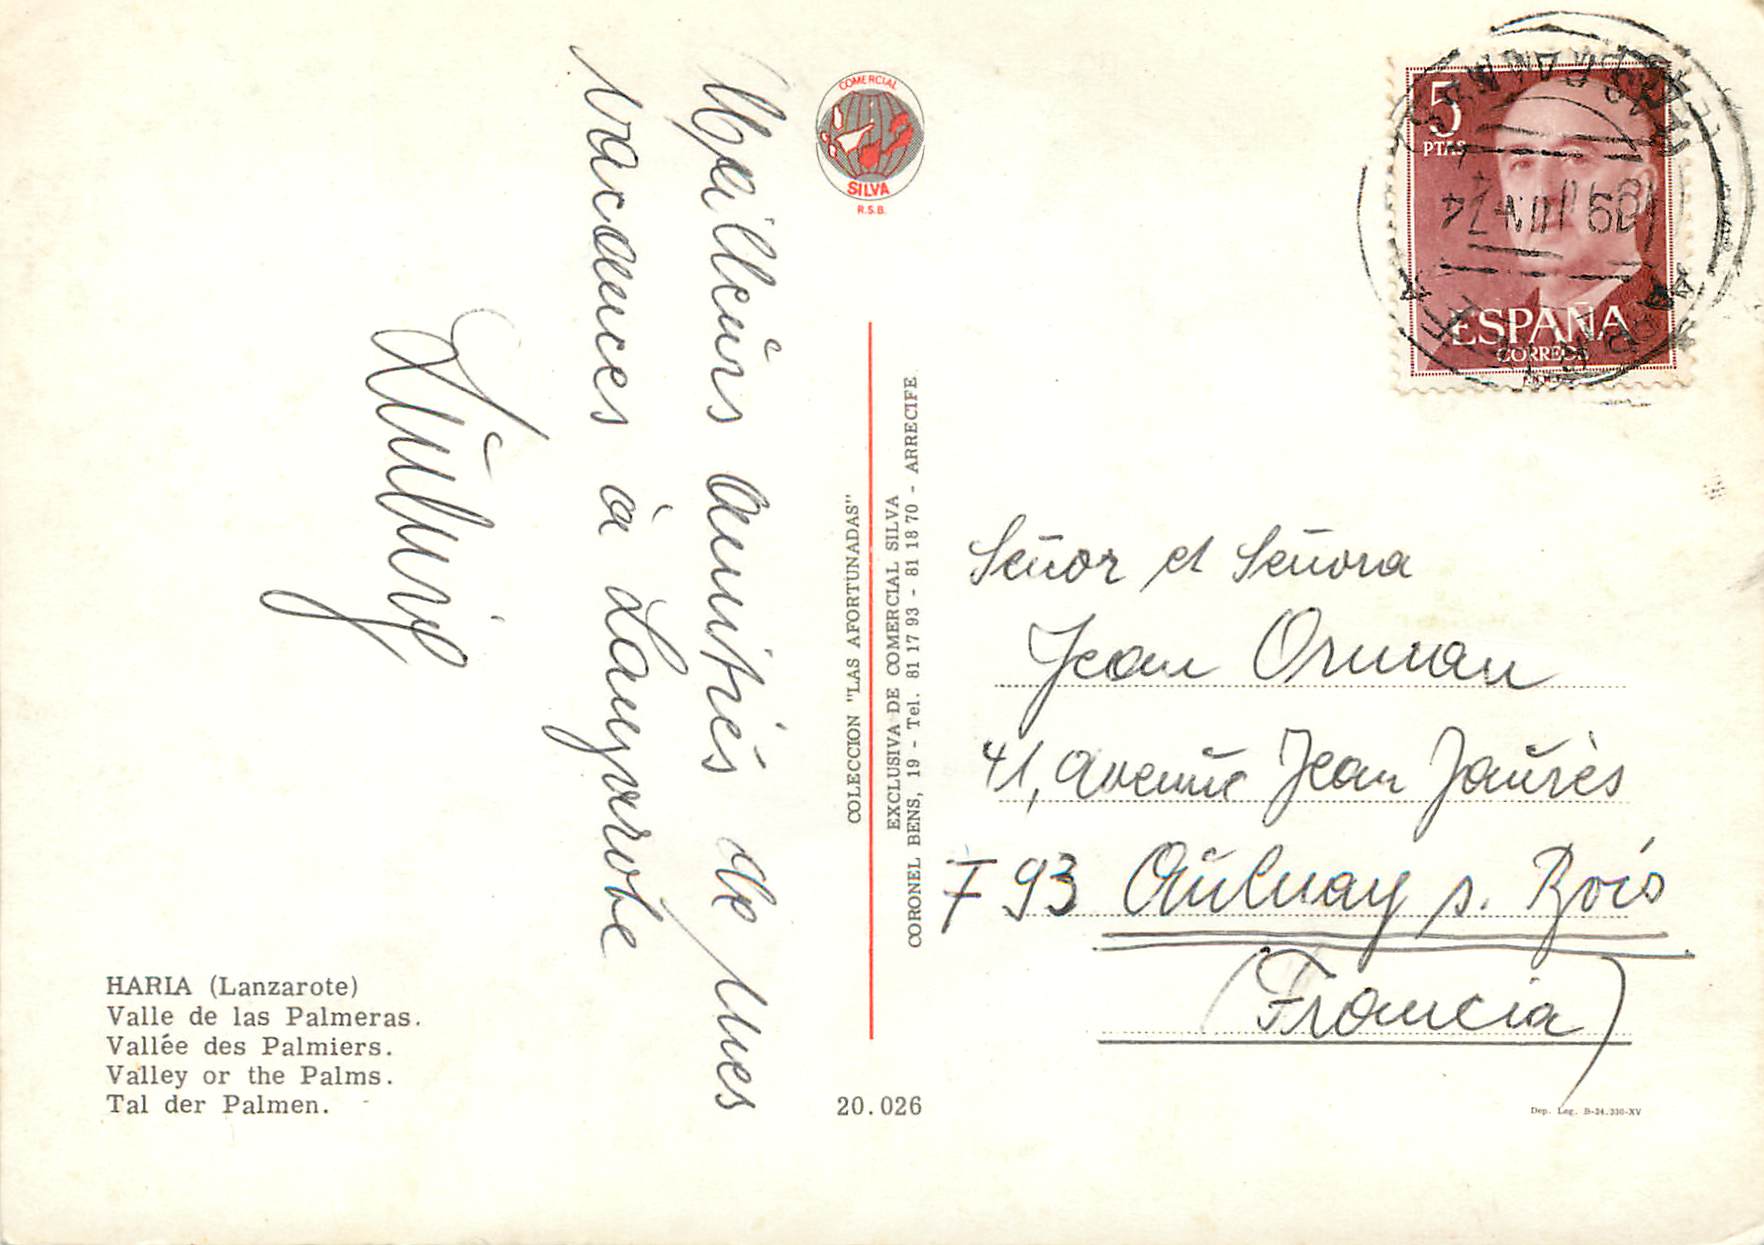 Meilleurs amitiés de mes
vacances à Lanzarote
COMERCIAL
SILVA
R.S.B.
COLECCION "LAS AFORTUNADAS"
EXCLUSIVA DE COMERCIAL SILVA
CORONEL BENS, 19 - Tel. 81 17 93 - 81 18 70 - ARRECIFE
5
PTAS
ESPAÑA
CORREOS
Señor et Señora
Jean Orman
41, avenue Jean Jaurès
F 93 Aulnay s. Bois
(Francia)
HARIA (Lanzarote)
Valle de las Palmeras.
Vallée des Palmiers.
Valley or the Palms.
Tal der Palmen.
20.026
Dep. Leg. B-24.330-XV